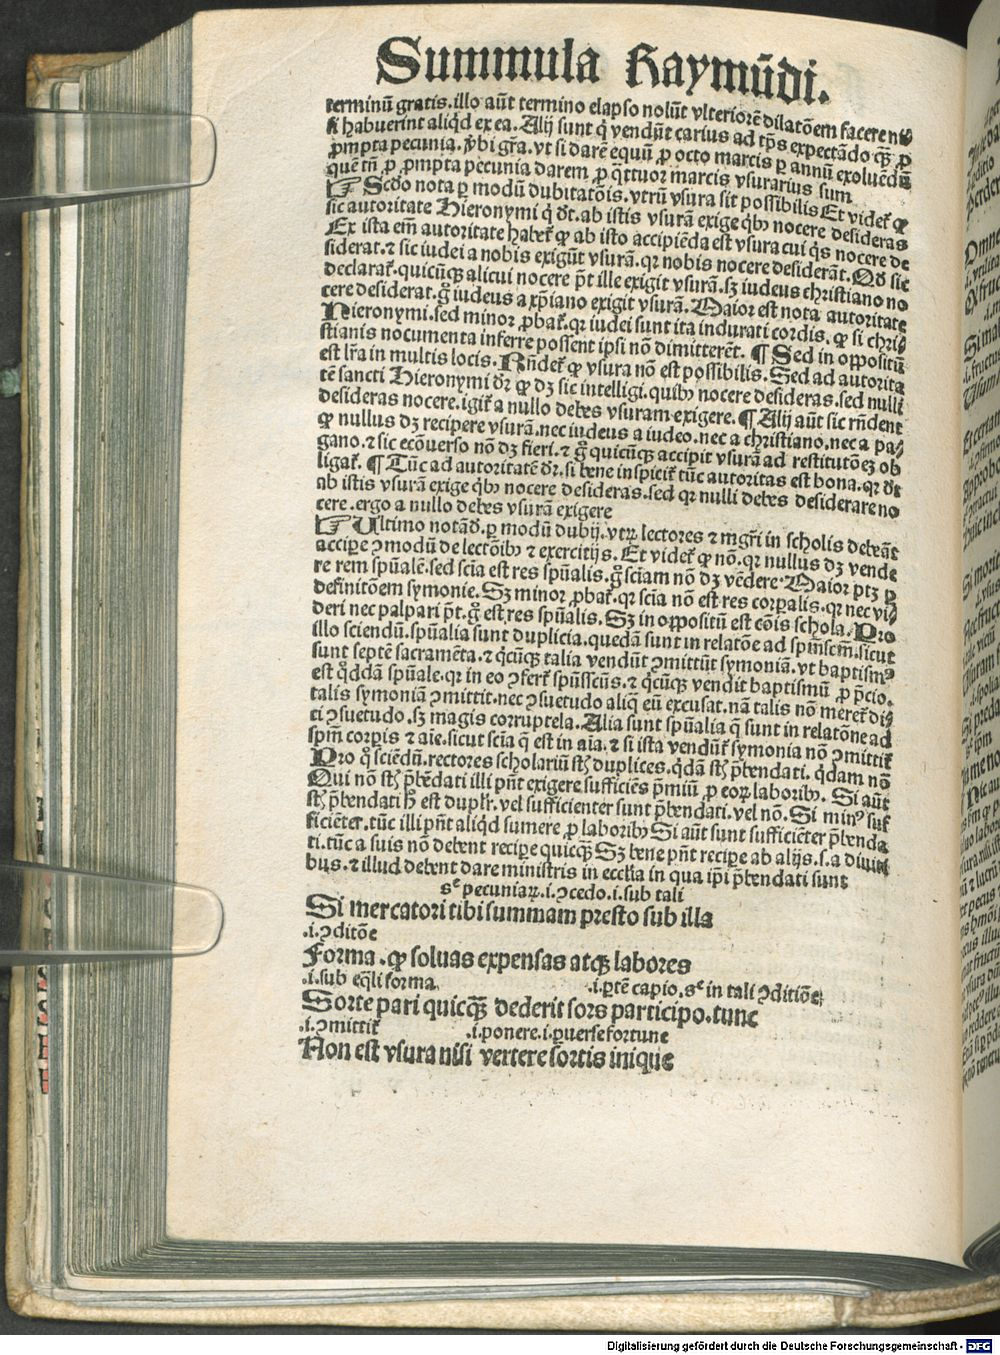 Summula Raymũdi.
terminũ gratis. illo aũt termino elapso nolũt vlteriorẽ dilatõem facere ni⸗
si habuerint aliq̃d ex ea. Alij sunt q̃ vendũt carius ad tp̃s expectãdo qꝫ̃ ꝓ
ꝓmpta pecunia. ꝟbi gr̃a. vt si darẽ equũ ꝓ octo marcis ꝑ annũ exoluẽdũ
quẽ tñ ꝓ ꝓmpta pecunia darem ꝓ q̃ttuor marcis vsurarius sum
☞ Scd̃o nota ꝑ modũ dubitatõis. vtrũ vsura sit possibilis Et videt̃ ꝙ
sic autoritate Hieronymi q̃ dt̃. ab istis vsurã exige qb̃ꝫ nocere desideras
Ex ista em̃ autoritate habet̃ ꝙ ab isto accipiẽda est vsura cui q̃s nocere de
siderat. ⁊ sic iudei a nobis exigũt vsurã. qꝛ nobis nocere desiderãt. Qd̃ sic
declarat̃. quicũqꝫ alicui nocere p̃t ille exigit vsurã. sꝫ iudeus christiano no
cere desiderat. g̊ iudeus a xp̃iano exigit vsurã. Maior est nota autoritate
Hieronymi. sed minor ꝓbat̃. qꝛ iudei sunt ita indurati cordis. ꝙ si chri⸗
stianis nocumenta inferre possent ipsi nõ dimitterẽt. ¶ Sed in oppositũ
est lr̃a in multis locis. Rñdet̃ ꝙ vsura nõ est possibilis. Sed ad autorita
tẽ sancti Hieronymi dr̃ ꝙ dꝫ sic intelligi. quibꝫ nocere desideras. sed nulli
desideras nocere. igit̃ a nullo debes vsuram exigere. ¶ Alij aũt sic rñdent
ꝙ nullus dꝫ recipere vsurã. nec iudeus a iudeo. nec a christiano. nec a pa⸗
gano. ⁊ sic ecõuerso nõ dꝫ fieri. ⁊ g̊ quicũqꝫ accipit vsurã ad restitutõeꝫ ob
ligat̃. ¶ Tũc ad autoritatẽ dr̃. si bene inspicit̃ tũc autoritas est bona. qꝛ dt̃
ab istis vsurã exige qb̃ꝫ nocere desideras. sed qꝛ nulli debes desiderare no
cere. ergo a nullo debes vsurã exigere
☞ Ultimo notãd̃. ꝑ modũ dubij. vtꝝ lectores ⁊ mgr̃i in scholis debeãt
accipe ꝯmodũ de lectõibꝫ ⁊ exercitijs. Et videt̃ ꝙ nõ. qꝛ nullus dꝫ vende
re rem spũalẽ. sed scĩa est res spũalis. g̊ scĩam nõ dꝫ vẽdere. Maior ptꝫ ꝑ
definitõem symonie. Sꝫ minor ꝓbat̃. qꝛ scĩa nõ est res corꝑalis. qꝛ nec vi⸗
deri nec palpari p̃t. g̊ est res spũalis. Sꝫ in oppositũ est cõis schola. Pro
illo sciendũ. spũalia sunt duplicia. quedã sunt in relatõe ad spm̃scm̃. sicut
sunt septẽ sacramẽta. ⁊ q̊cũqꝫ talia vendũt ꝯmittũt symoniã. vt baptismꝰ
est q̊ddã spũale. qꝛ in eo ꝯfert̃ spũsscũs. ⁊ q̊cũqꝫ vendit baptismũ ꝓ p̃cio.
talis symoniã ꝯmittit. nec ꝯsuetudo aliq̃ eũ excusat. nã talis nõ meret̃ di⸗
ci ꝯsuetudo. sꝫ magis corruptela. Alia sunt spũalia q̃ sunt in relatõne ad
spm̃ corꝑis ⁊ aĩe. sicut scĩa q̃ est in aĩa. ⁊ si ista vendũt̃ symonia nõ ꝯmittit̃
Pro q̊ sciẽdũ. rectores scholariũ st̃ duplices. q̃dã st̃ p̃bendati. q̃dam nõ
Qui nõ st̃ p̃bẽdati illi pñt exigere sufficiẽs p̃miũ ꝓ eoꝝ laboribꝫ. Si aũt
st̃ p̃bendati h̃ est duplr̃. vel sufficienter sunt p̃bendati. vel nõ. Si minꝰ suf
ficiẽter. tũc illi pñt aliq̃d sumere ꝓ laboribꝫ Si aũt sunt sufficiẽter p̃benda
ti. tũc a suis nõ debent recipe quicqꝫ̃ Sꝫ bene pñt recipe ab alijs. s. a diuiti
bus. ⁊ illud debent dare ministris in eccl̃ia in qua ip̃i p̃bendati sunt
sꝫ pecuniaꝝ. i. ꝯcedo. i. sub tali
Si mercatori tibi summam presto sub illa
.i. ꝯditõe
Forma. ꝙ soluas expensas atqꝫ labores
.i. sub eq̃li forma .i. ꝑtẽ capio. sꝫ in tali ꝯditiõe
Sorte pari quicqꝫ̃ dederit sors participo. tunc
.i. ꝯmittit̃ .i. ponere. i. ꝑuerse fortune
Non est vsura nisi vertere sortis inique
Digitalisierung gefördert durch die Deutsche Forschungsgemeinschaft - DFG